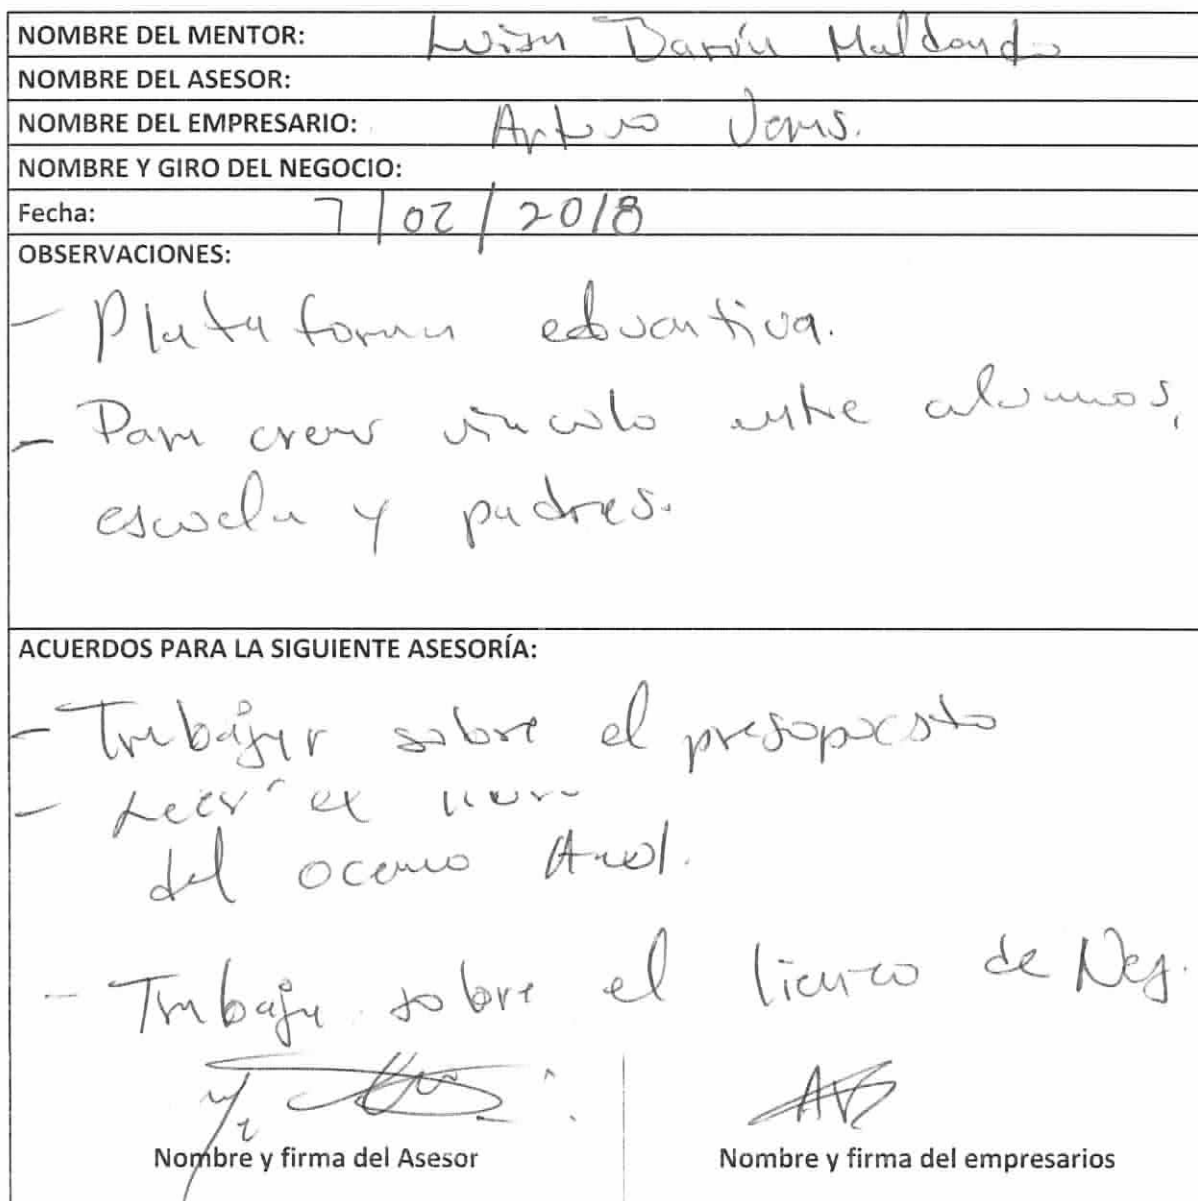 NOMBRE DEL MENTOR: Luisa Darín Maldonado
NOMBRE DEL ASESOR:
NOMBRE DEL EMPRESARIO: Arturo
NOMBRE Y GIRO DEL NEGOCIO:
Fecha: 7/02/2018
OBSERVACIONES:
- Plataforma educativa.
- Para crear vínculo entre alumnos,
escuela y padres.
ACUERDOS PARA LA SIGUIENTE ASESORÍA:
- Trabajar sobre el presupuesto
- Leer el libro
del oceano Azul.
- Trabajar sobre el lienzo de Neg.
Nombre y firma del Asesor
Nombre y firma del empresarios